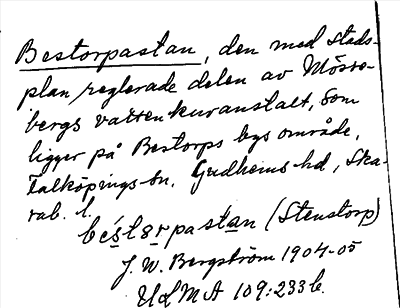 Bestorpastan, den med Stads-
plan reglerade delen av Mösse-
bergs vattenkuranstalt, som
ligger på Bestorps bys område,
Falköpings sn. Gudhems hd, Ska-
rab. l.
bèstorpastan (Stenstorp)
J. W. Bergström 1904-05
ULMA 109:233 b.